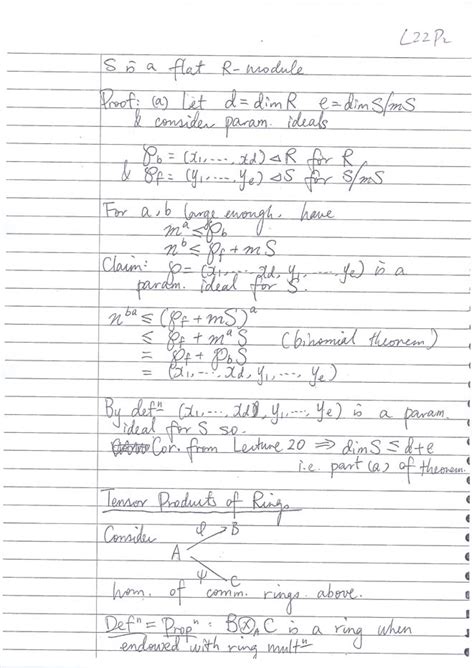 L22P2
S is a flat R-module
Proof: (a) Let d = dim R e = dim S/mS
& consider param. ideals
℘b = (x1, ..., xd) ⊲ R for R
& ℘f = (y1, ..., ye) ⊲ S for S/mS
For a, b large enough, have
m^a ≤ ℘b
n^b ≤ ℘f + mS
Claim: ℘ = (x1, ..., xd, y1, ..., ye) is a
param. ideal for S.
n^ba ≤ (℘f + mS)^a
≤ ℘f + m^a S (binomial theorem)
= ℘f + ℘b S
= (x1, ..., xd, y1, ..., ye)
By defⁿ (x1, ..., xd, y1, ..., ye) is a param.
ideal for S so.
Cor. from Lecture 20 ⇒ dim S ≤ d+e
i.e. part (a) of theorem.
Tensor Products of Rings
Consider
φ B
A
ψ C
hom. of comm. rings above.
Defⁿ = Propⁿ: B⊗_A C is a ring when
endowed with ring multⁿ